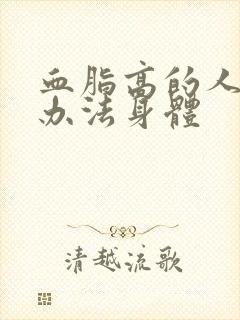 血脂高的人
办法身體
清越流歌